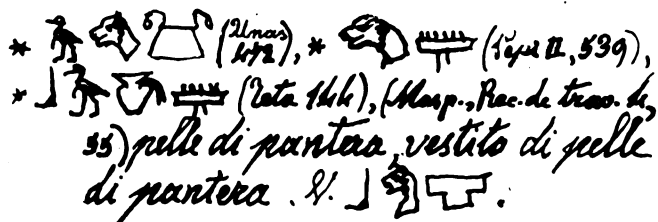 * (Unas
472), * (Pepi II, 539),
* (Teta 144), (Masp., Rec. de trav. 4,
55) pelle di pantera, vestito di pelle
di pantera. V. .